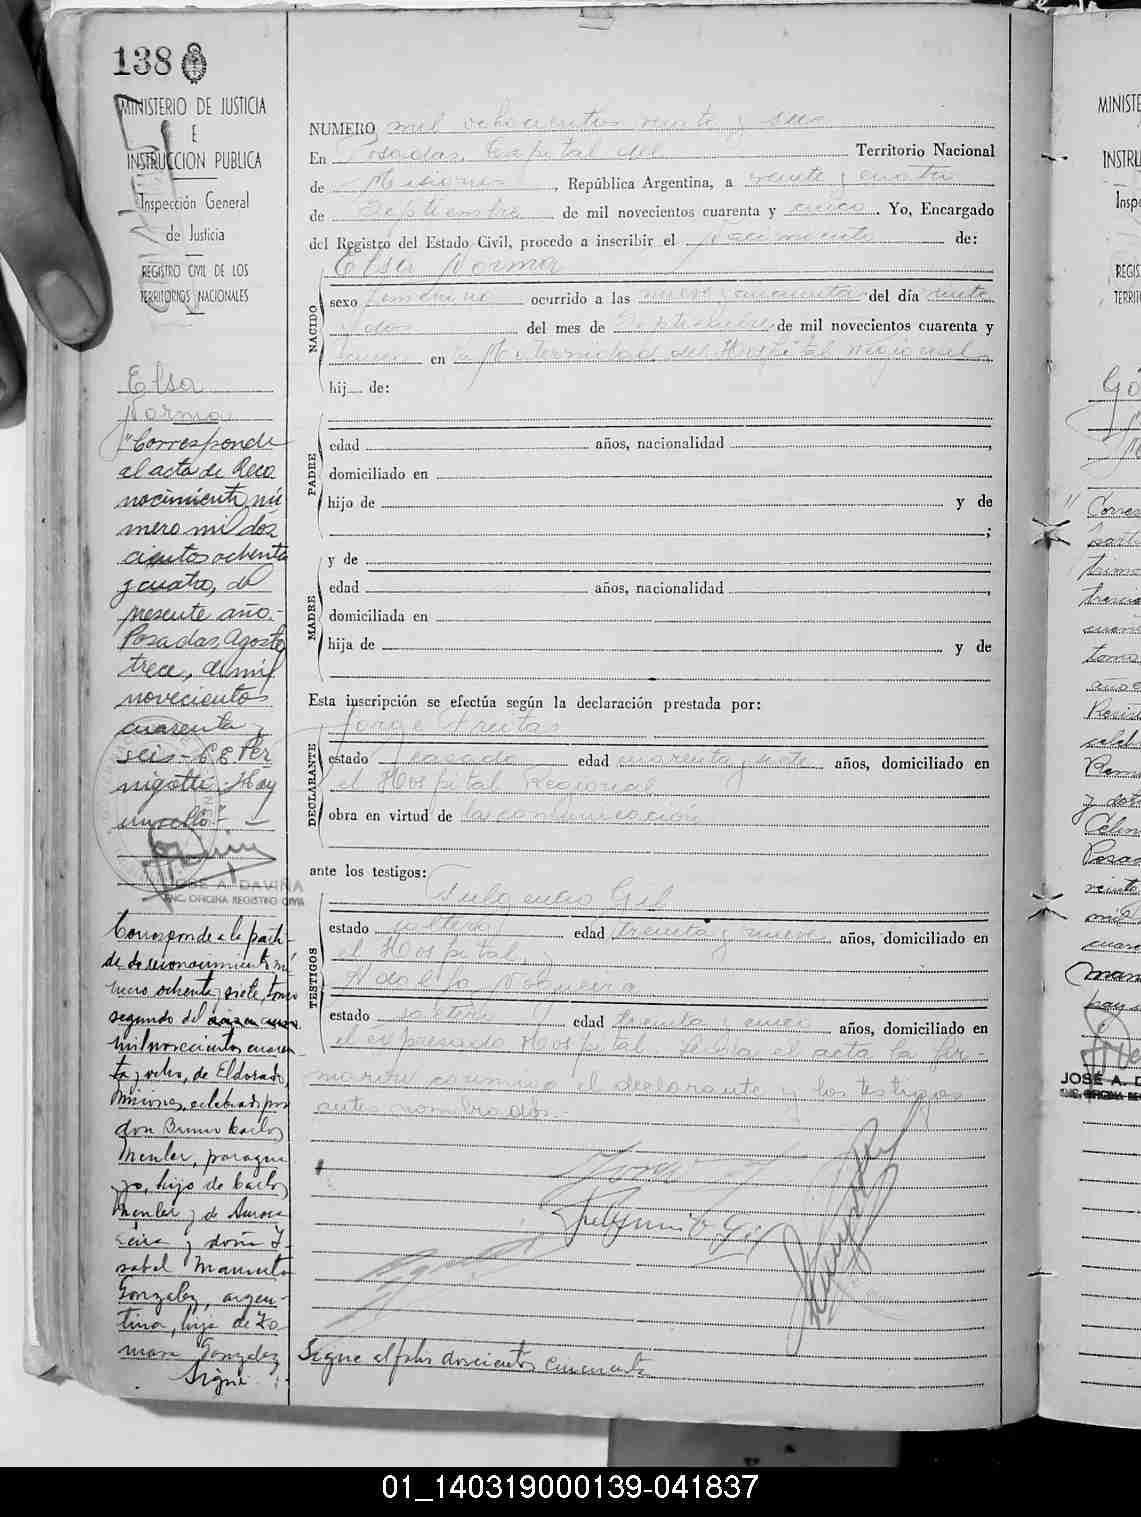 138
MINISTERIO DE JUSTICIA
E
INSTRUCCION PUBLICA
Inspección General
de Justicia
REGISTRO CIVIL DE LOS
TERRITORIOS NACIONALES
Elsa
Norma
"Corresponde
al acta de Reco
nocimiento nú
mero mil dos
cientos ochenta
y cuatro, del
presente año.-
Posadas, Agosto
trece, de mil
novecientos
cuarenta y
seis - Hay
un sello" -
JOSE A. DAVIÑA
ENC. OFICINA REGISTRO CIVIL
Corresponde a la parti-
da de reconocimiento nú
mero ochenta y siete, tomo
segundo del
mil novecientos cuaren
ta y ocho, de Eldorado,
Misiones, celebrado por
don Bruno Carlos
Menler, paragua
yo, hijo de Carlos
Menler y de Aurora
y doña I-
sabel Manuela
Gonzalez, argen-
tina, hija de To
masa Gonzalez
Sigue
NUMERO mil ochocientos veinte y seis
En Posadas, Capital del Territorio Nacional
de Misiones, República Argentina, a veinte y cuatro
de Septiembre de mil novecientos cuarenta y cinco. Yo, Encargado
del Registro del Estado Civil, procedo a inscribir el Nacimiento de:
Elsa Norma
NACIDO
sexo femenino ocurrido a las nueve y cuarenta del día veinte
y dos del mes de Septiembre de mil novecientos cuarenta y
cinco en la Maternidad del Hospital Regional
hij de:
PADRE
edad años, nacionalidad ,
domiciliado en
hijo de y de
;
MADRE
y de
edad años, nacionalidad ,
domiciliada en
hija de y de
Esta inscripción se efectúa según la declaración prestada por:
DECLARANTE
Jorge Freitas
estado casado edad cuarenta y siete años, domiciliado en
el Hospital Regional
obra en virtud de la comunicación
ante los testigos:
TESTIGOS
Fulgencio Gil
estado soltero edad treinta y nueve años, domiciliado en
el Hospital,
Adolfo Nogueira
estado soltero edad treinta cinco años, domiciliado en
el expresado Hospital. Leída el acta la fir-
maron conmigo el declarante y los testigos
antes nombrados.-
Sigue al folio doscientos cincuenta
MINISTE
INSTRU
Inspe
REGIS
TERRIT
JOSE A. D
01_140319000139-041837